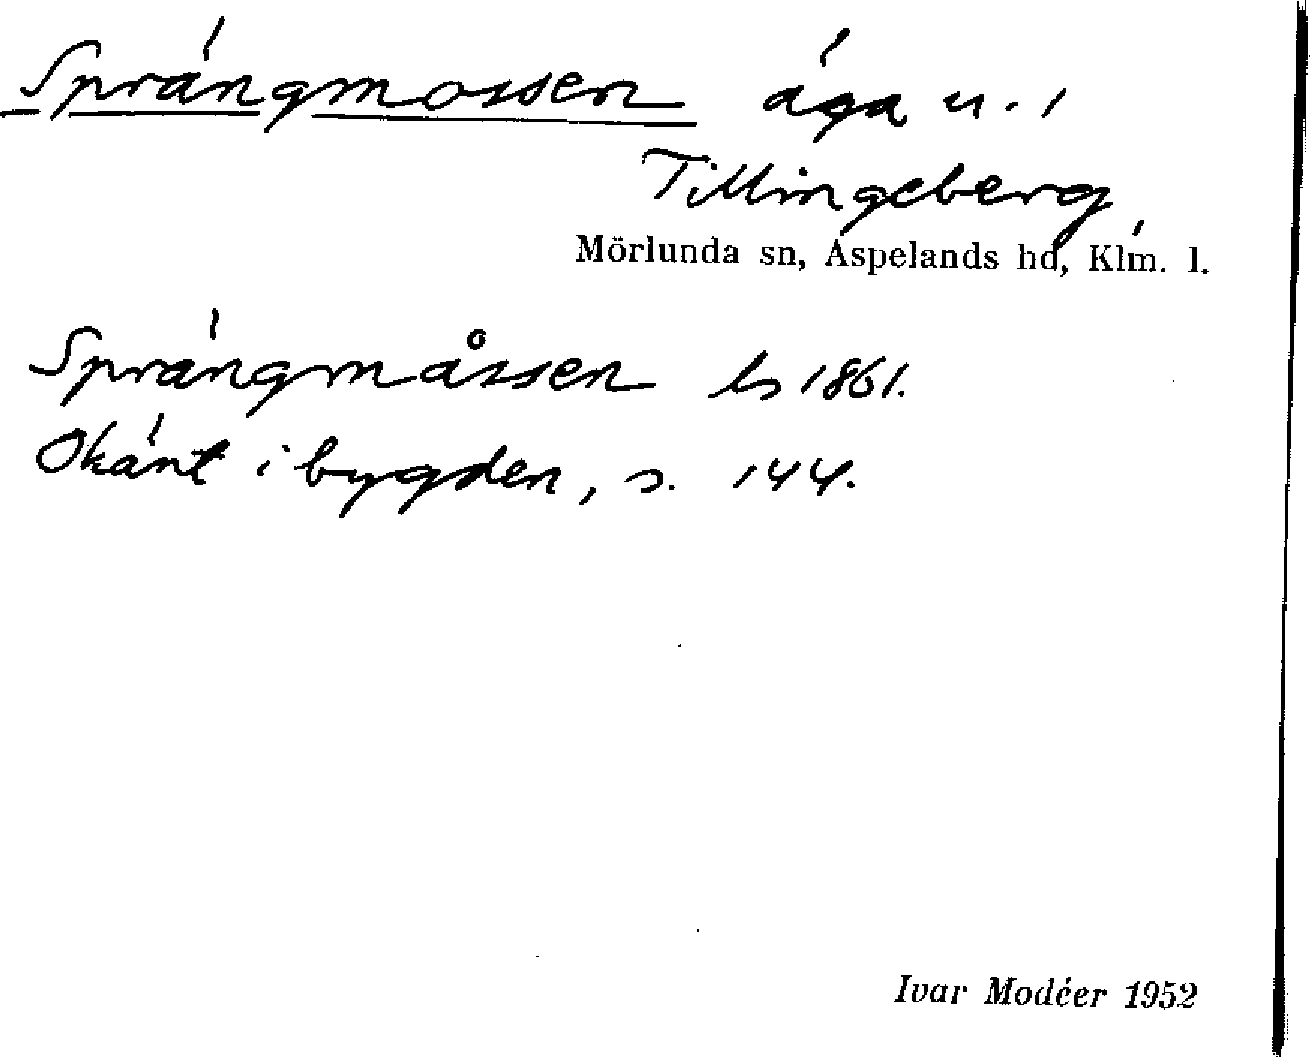 Sprängmossen äga u. 1
Tillingeberg,
Mörlunda sn, Aspelands hd, Klm. l.
Sprängmåssen ls 1861.
Okänt i bygden, s. 144.
Ivar Modéer 1952